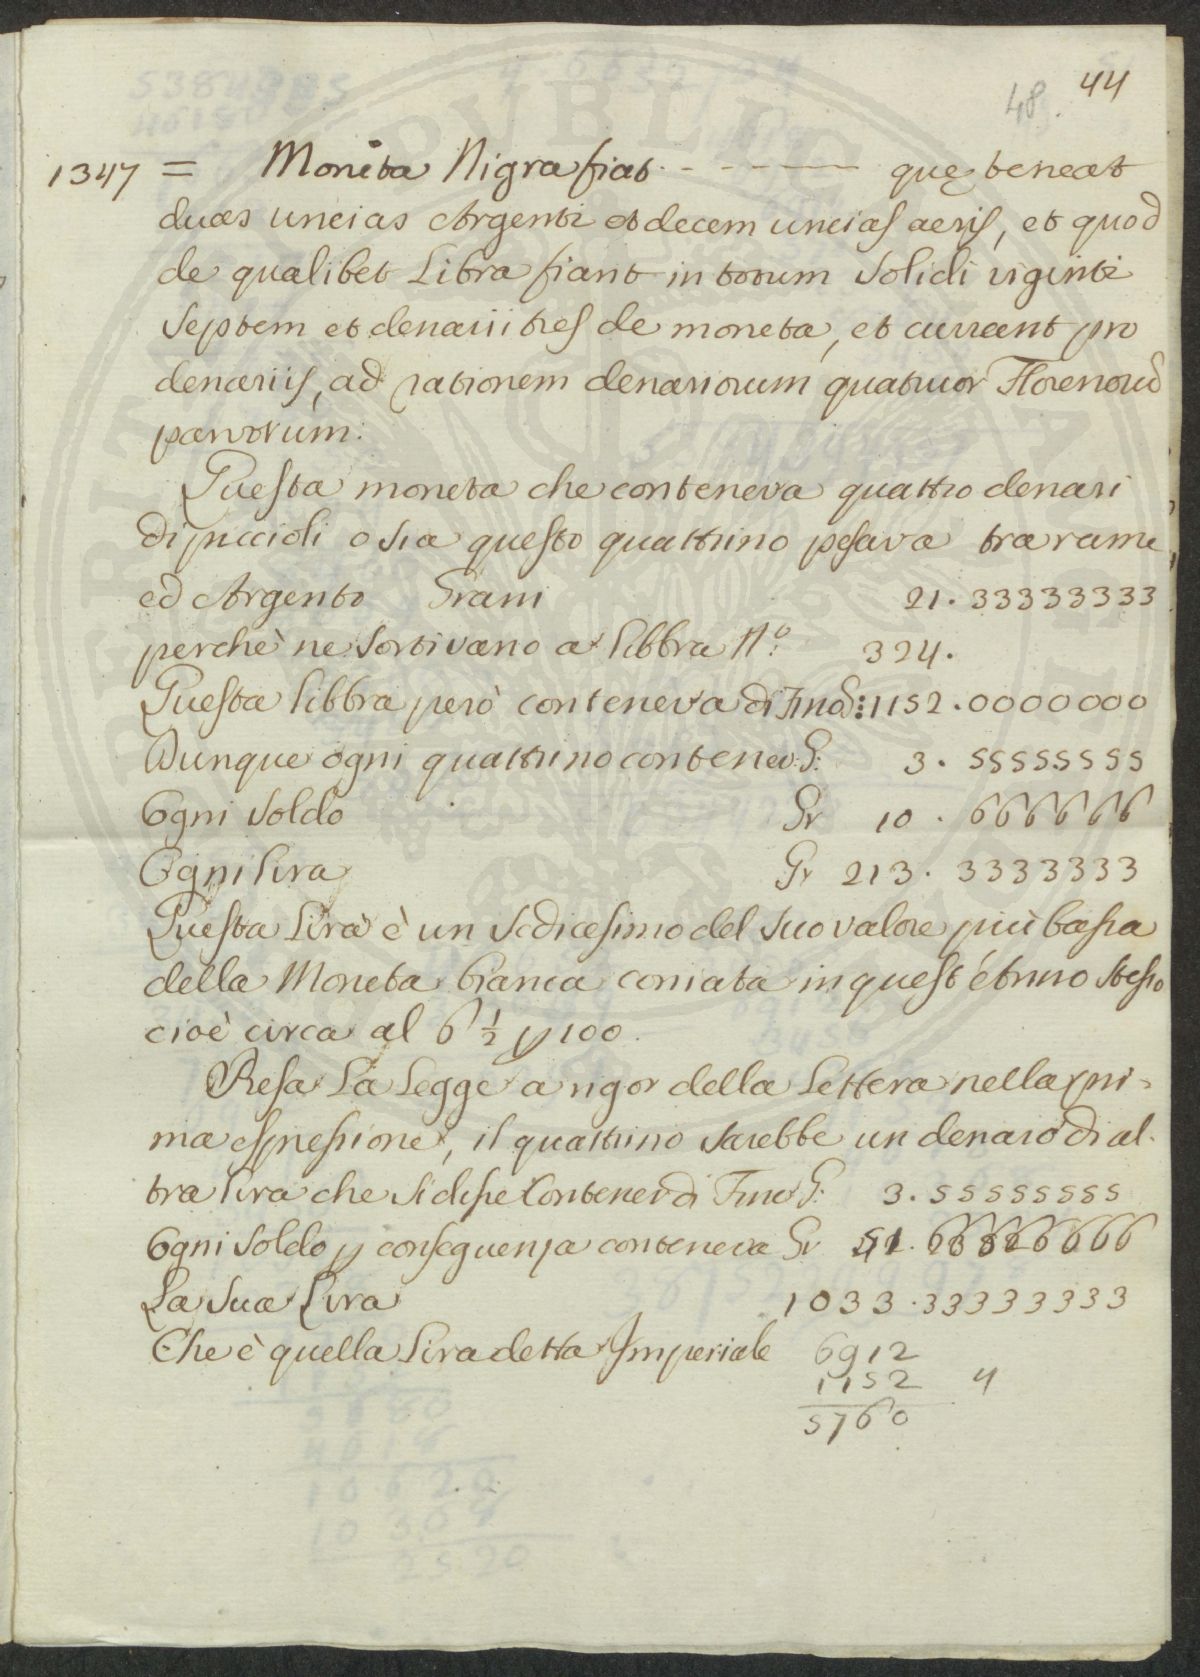 48. 44
1347 = Moneta Nigra fiat - - - - — quę teneat
duas uncias Argenti et decem uncias aeris, et quod
de qualibet Libra fiant in totum Solidi viginti
Septem et denarii tres de moneta, et currant pro
denariis, ad rationem denariorum quatuor Florenorũ
parvorum.
Questa moneta che conteneva quattro denari
di piccioli o sia questo quattrino pesava tra rame
ed Argento Grani 21.33333333
perchè ne Sortivano a libbra N.o 324.
Questa libbra però conteneva di Fino G: 1152.0000000
Dunque ogni quattrino contenev: G: 3.55555555
Ogni Soldo Gr 10.6666666
Ogni lira Gr 213.3333333
Questa Lira è un Sedicesimo del Suo valore più bassa
della Moneta bianca coniata in quest'Anno Stesso
cioè circa al 6 1/2 p 100.
Resa La Legge a rigor della Lettera nella pri=
ma espressione, il quattrino Sarebbe un denaro di al-
tra lira che Si disse Contener di Fino G: 3.55555555
Ogni Soldo p conseguenza conteneva Gr 51.66666666
La Sua Lira 1033.33333333
Che è quella Lira detta Imperiale 6912
1152 4
5760